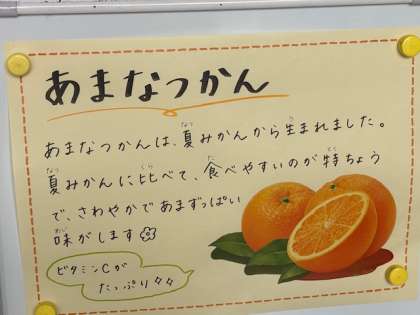 あまなつかん
あまなつかんは、夏みかんから生まれました。
夏みかんに比べて、食べやすいのが特ちょう
で、さわやかであまずっぱい
味がします
ビタミンCが
たっぷり